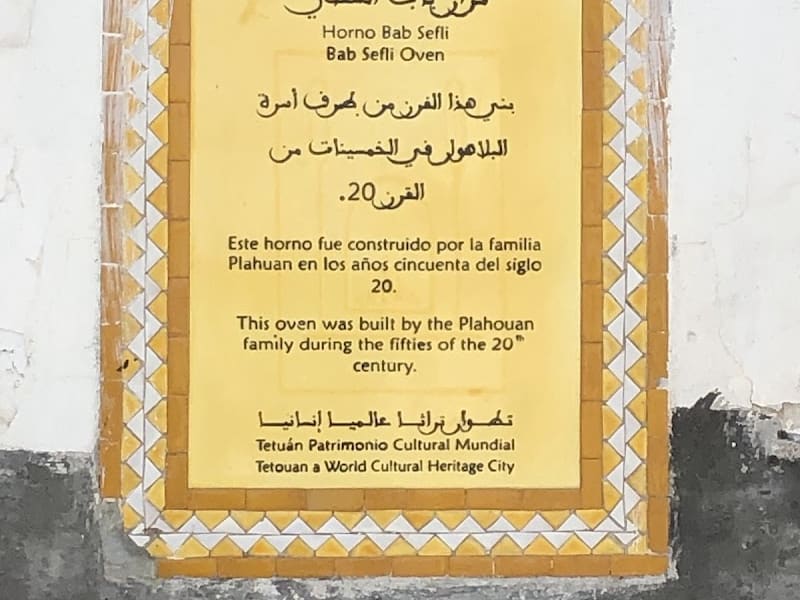 Horno Bab Sefli
Bab Sefli Oven
بني هذا الفرن من طرف أسرة
البلاهوان في الخمسينات من
القرن 20.
Este horno fue construido por la familia
Plahuan en los años cincuenta del siglo
20.
This oven was built by the Plahouan
family during the fifties of the 20th
century.
تطوان تراثا عالميا إنسانيا
Tetuán Patrimonio Cultural Mundial
Tetouan a World Cultural Heritage City